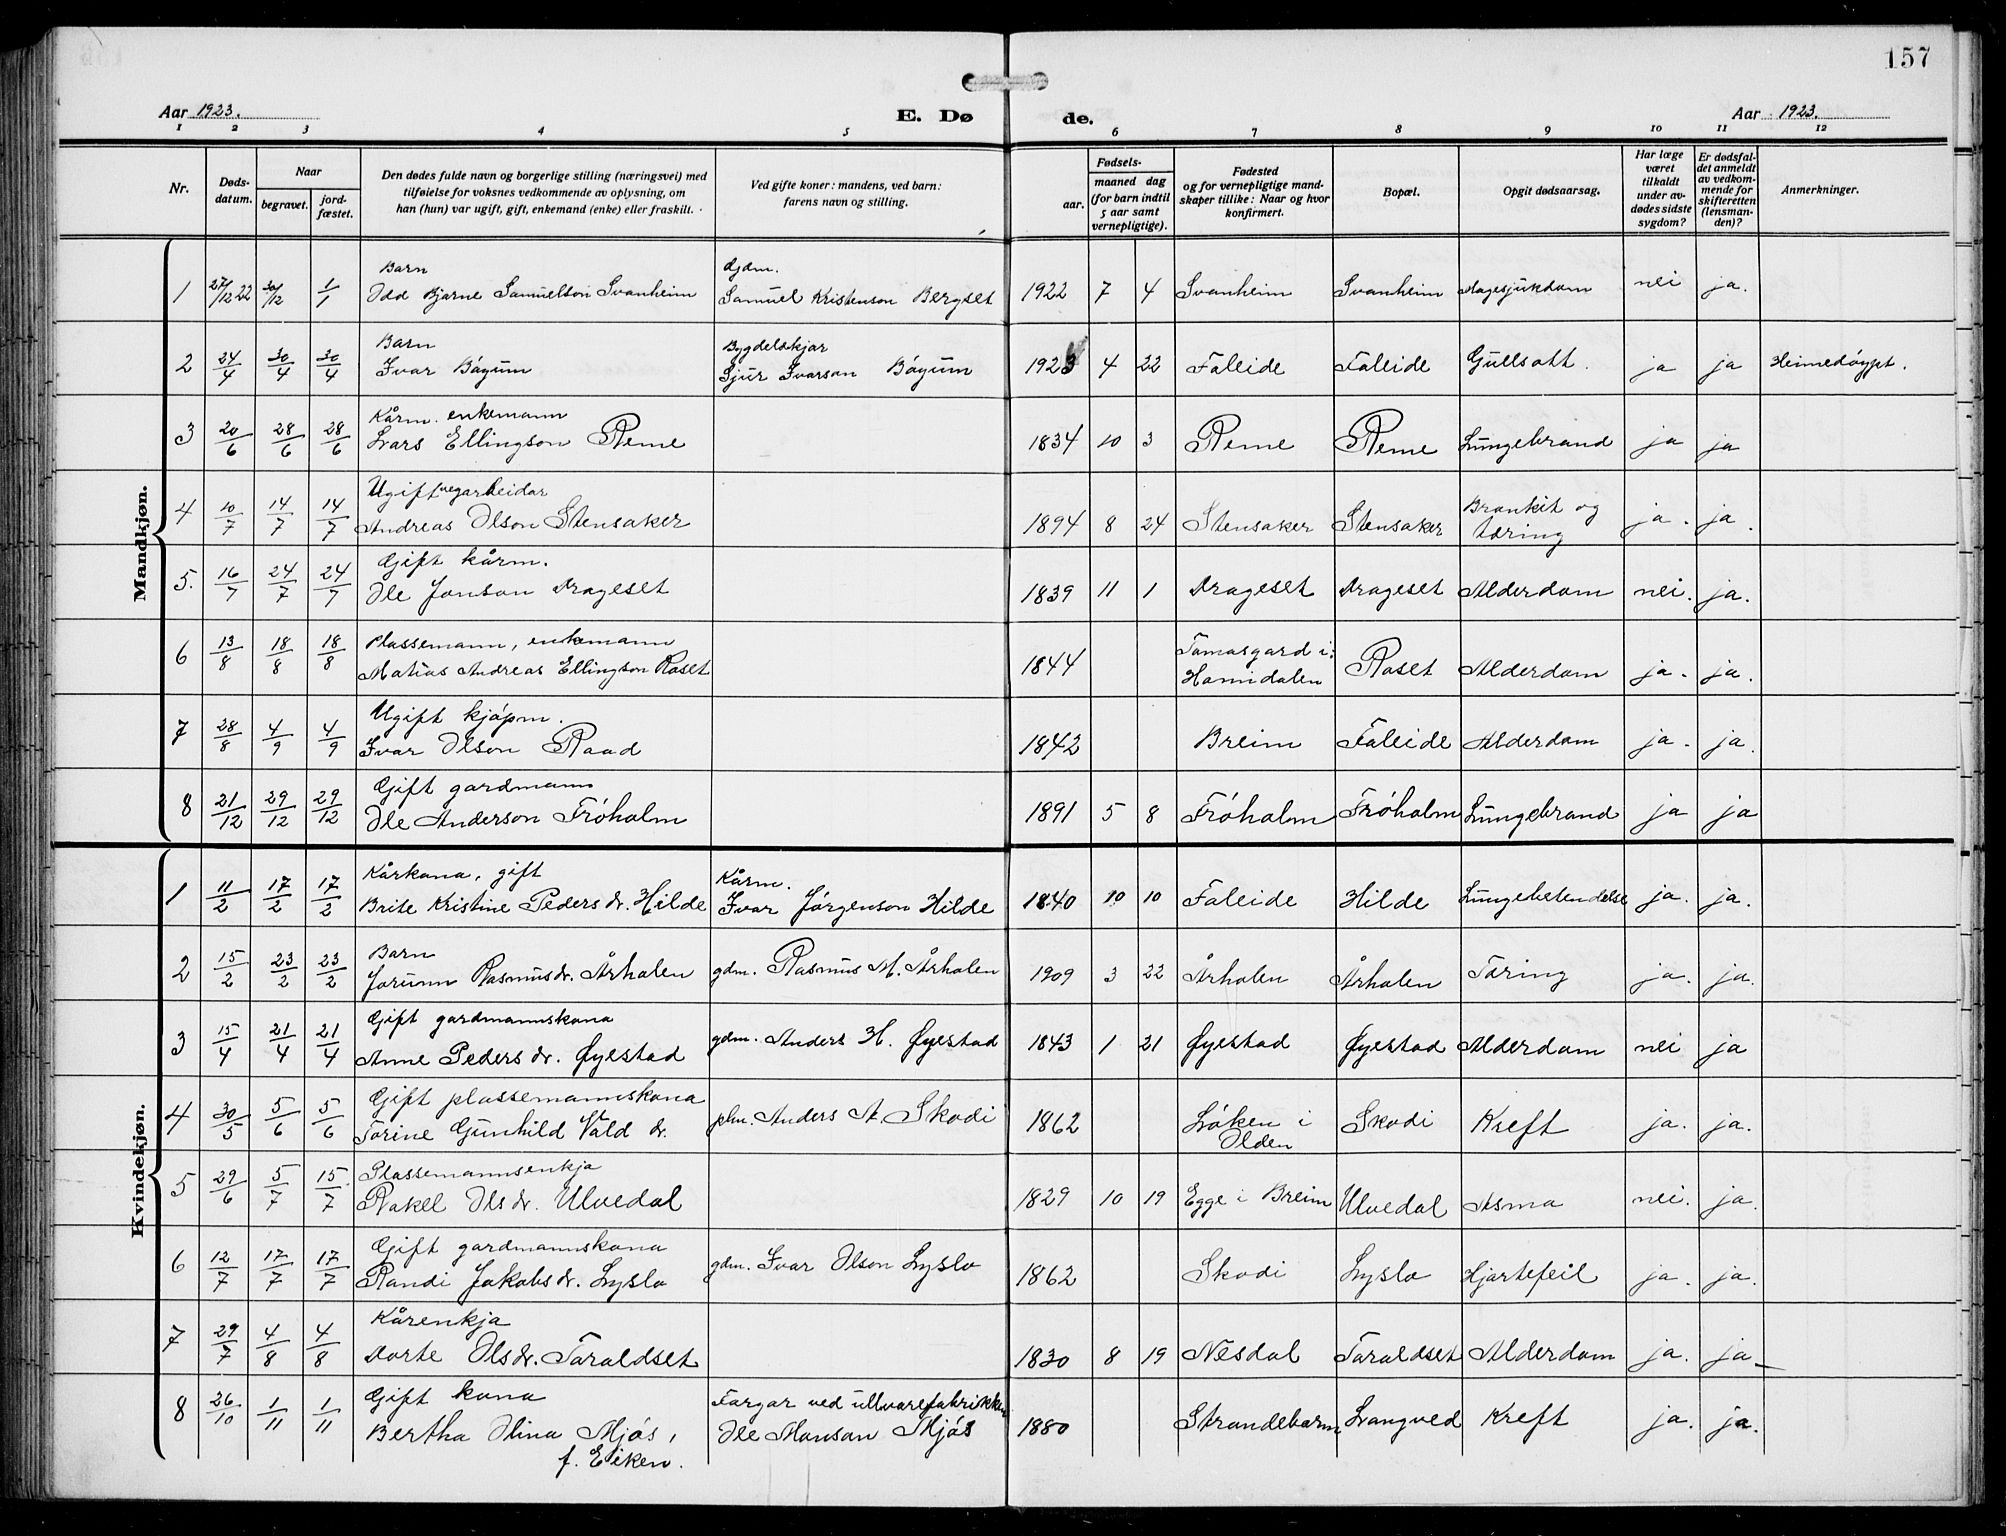 157
Aar 1923.
E. Døde.
Aar 1923.
1 2 3 4 5 6 7 8 9 10 11 12
Nr.
Døds-datum.
Naar
begravet.
jord-fæstet.
Den dødes fulde navn og borgerlige stilling (næringsvei) med tilføielse for voksnes vedkommende av oplysning, om han (hun) var ugift, gift, enkemand (enke) eller fraskilt.
Ved gifte koner: mandens, ved barn: farens navn og stilling.
Fødsels-
aar.
maaned dag (for barn indtil 5 aar samt vernepligtige).
Fødested og for vernepligtige mand-skaper tillike: Naar og hvor konfirmert.
Bopæl.
Opgit dødsaarsag.
Har læge været tilkaldt under av-dødes sidste sygdom?
Er dødsfal-det anmeldt av vedkom-mende for skifteretten (lensman-den)?
Anmerkninger.
Mandkjøn.
Barn Gdm.
1 27/12 22 30/12 1/1 Odd Bjarne Samuelson Svanheim Samuel Kristenson Bergset 1922 7 4 Svanheim Svanheim Magesjukdom nei ja.
Barn Bygdelækjar
2 24/4 30/4 30/4 Ivar Bøyum Sjur Ivarson Bøyum 1923 4 22 Faleide Faleide Gullsott. ja ja Heimedøypt.
Kårm. enkemann
3 20/6 28/6 28/6 Lars Ellingson Reme 1834 10 3 Reme Reme Lungebrand ja ja
Ugift vegarbeidar
4 10/7 14/7 14/7 Andreas Olson Stensaker 1894 8 24 Stensaker Stensaker Bronkit og tæring ja. ja.
Gift kårm.
5. 16/7 24/7 24/7 Ole Jonson Drageset 1839 11 1 Drageset Drageset Alderdom nei. ja.
Plassemann, enkemann
6 13/8 18/8 18/8 Matias Andreas Ellingson Roset 1844 Tomasgard i Hornindalen Roset Alderdom ja. ja.
Ugift kjøpm.
7 28/8 4/9 4/9 Ivar Olson Raad 1842 Breim Faleide Alderdom ja. ja.
Gift gardmann
8 21/12 29/12 29/12 Ole Anderson Frøholm 1891 5 8 Frøholm Frøholm Lungebrand ja ja
Kvindekjøn.
Kårkona, gift Kårm.
1 11/2 17/2 17/2 Brite Kristine Peders dr. Hilde Ivar Jørgenson Hilde 1840 10 10 Faleide Hilde Lungebetendelse ja. ja.
Barn
2 15/2 23/2 23/2 Jorunn Rasmus dr. Årholen gdm. Rasmus M. Årholen 1909 3 22 Årholen Årholen Tæring ja. ja.
Gift gardmannskona
3 15/4 21/4 21/4 Anne Peders dr. Øyestad gdm. Anders H. Øyestad 1843 1 21 Øyestad Øyestad Alderdom nei ja
Gift plassemannskona
4 30/5 5/6 5/6 Torine Gunhild Vald dr. plm. Anders A. Skodi 1862 Løken i Olden Skodi Kreft ja. ja.
Plassemannsenkja
5 29/6 5/7 15/7 Rakel Ols dr. Ulvedal 1829 10 19 Egge i Breim Ulvedal Asma nei. ja.
Gift gardmannskona
6 12/7 17/7 17/7 Randi Jakobs dr. Lyslo gdm. Ivar Olson Lyslo 1862 Skodi Lyslo Hjartefeil ja. ja.
Kårenkja
7 29/7 4/8 4/8 Dorte Ols dr. Taraldset 1830 8 19 Nesdal Taraldset Alderdom ja. ja
Gift kona Fargar ved ullvarefabrikken
8 26/10 1/11 1/11 Bertha Olina Mjøs, f. Eiken. Ole Monson Mjøs 1880 Strandebarm Langved Kreft ja. ja.